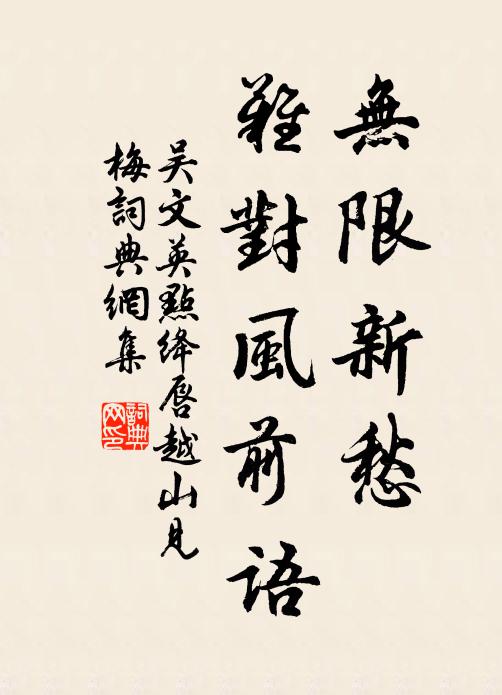 無限新愁
難對風前語
吴文英點绛唇越山見
梅詞典網集
詞典
网印